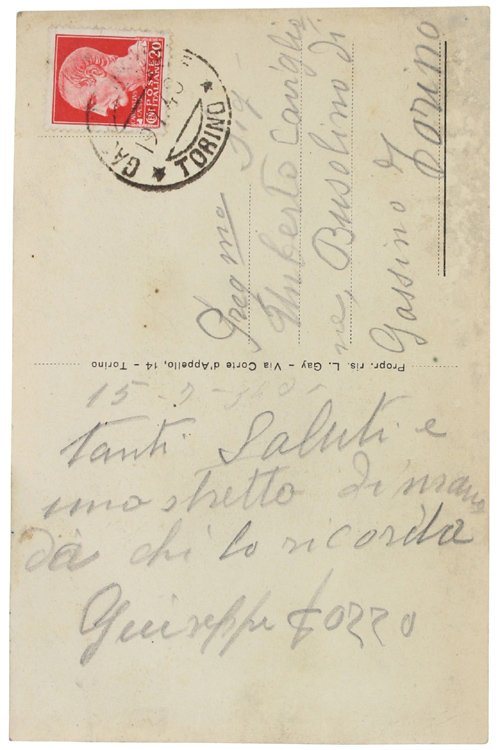 POSTE
ITALIANE
20
CENT.
TORINO
Preg mo Sig
Umberto Caviglio
ne, Busolino di
Gassino
Torino
Propr. ris. L. Gay - Via Corte d'Appello, 14 - Torino
15-
tanti Saluti e
uno stretto di mano
da chi lo ricorda
Guiseppe Gozzo